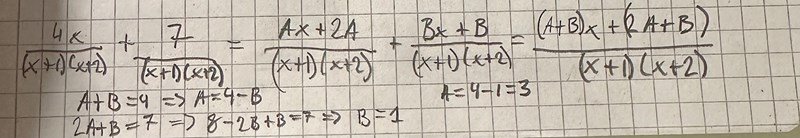 4x/((x+1)(x+2)) + 7/((x+1)(x+2)) = (Ax+2A)/((x+1)(x+2)) + (Bx+B)/((x+1)(x+2)) = ((A+B)x+(2A+B))/((x+1)(x+2))
A+B=4 => A=4-B
A=4-1=3
2A+B=7 => 8-2B+B=7 => B=1